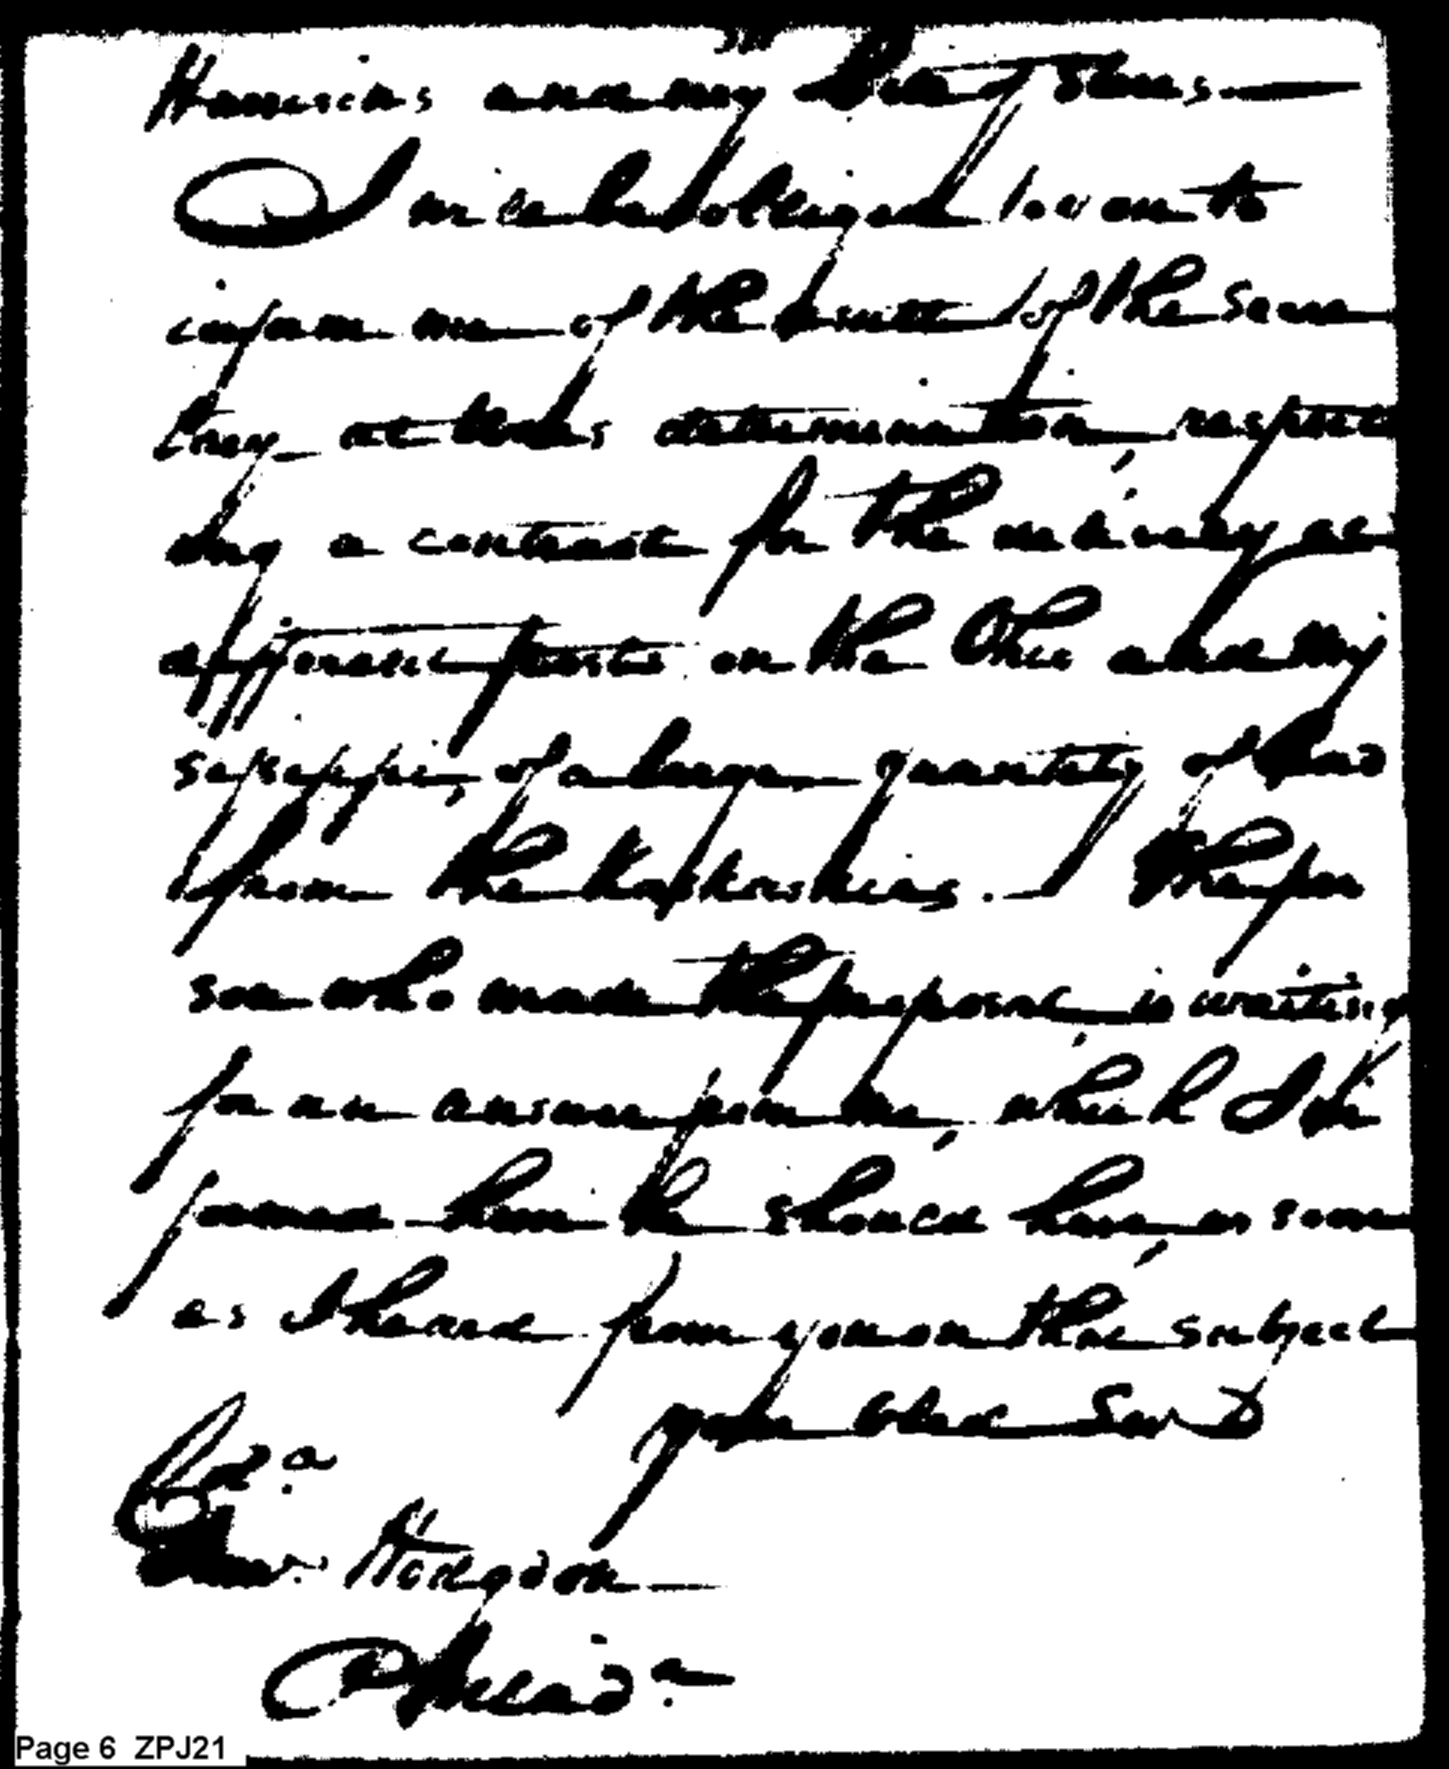 and my
I will be obliged to you to
inform me of the result of the Secre
tary at Wars determination, respect
ing a contract for the delivery at
different posts on the Ohio and Mis
sissippi, of a large quantity of lead
from the Kaskaskias. The per
son who made the proposal, is waiting
for an answer from me, which I in
formed him he should have, as soon
as I heard from you on that subject
your Obed Serv
Hodgdon
Philada
Page 6 ZPJ21